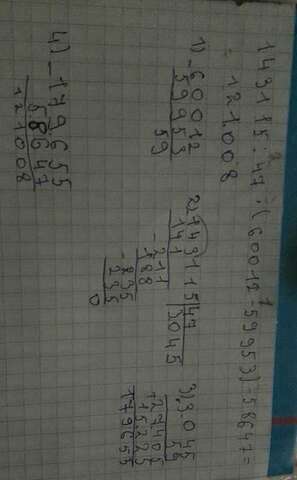 143115:47·(60012-59953)-58647=
121008
1) -60012
59953
59
2) 143115|47
141 |3045
-211
188
-235
235
0
3) 3045
59
27405
15225
179655
4) -179655
58647
121008